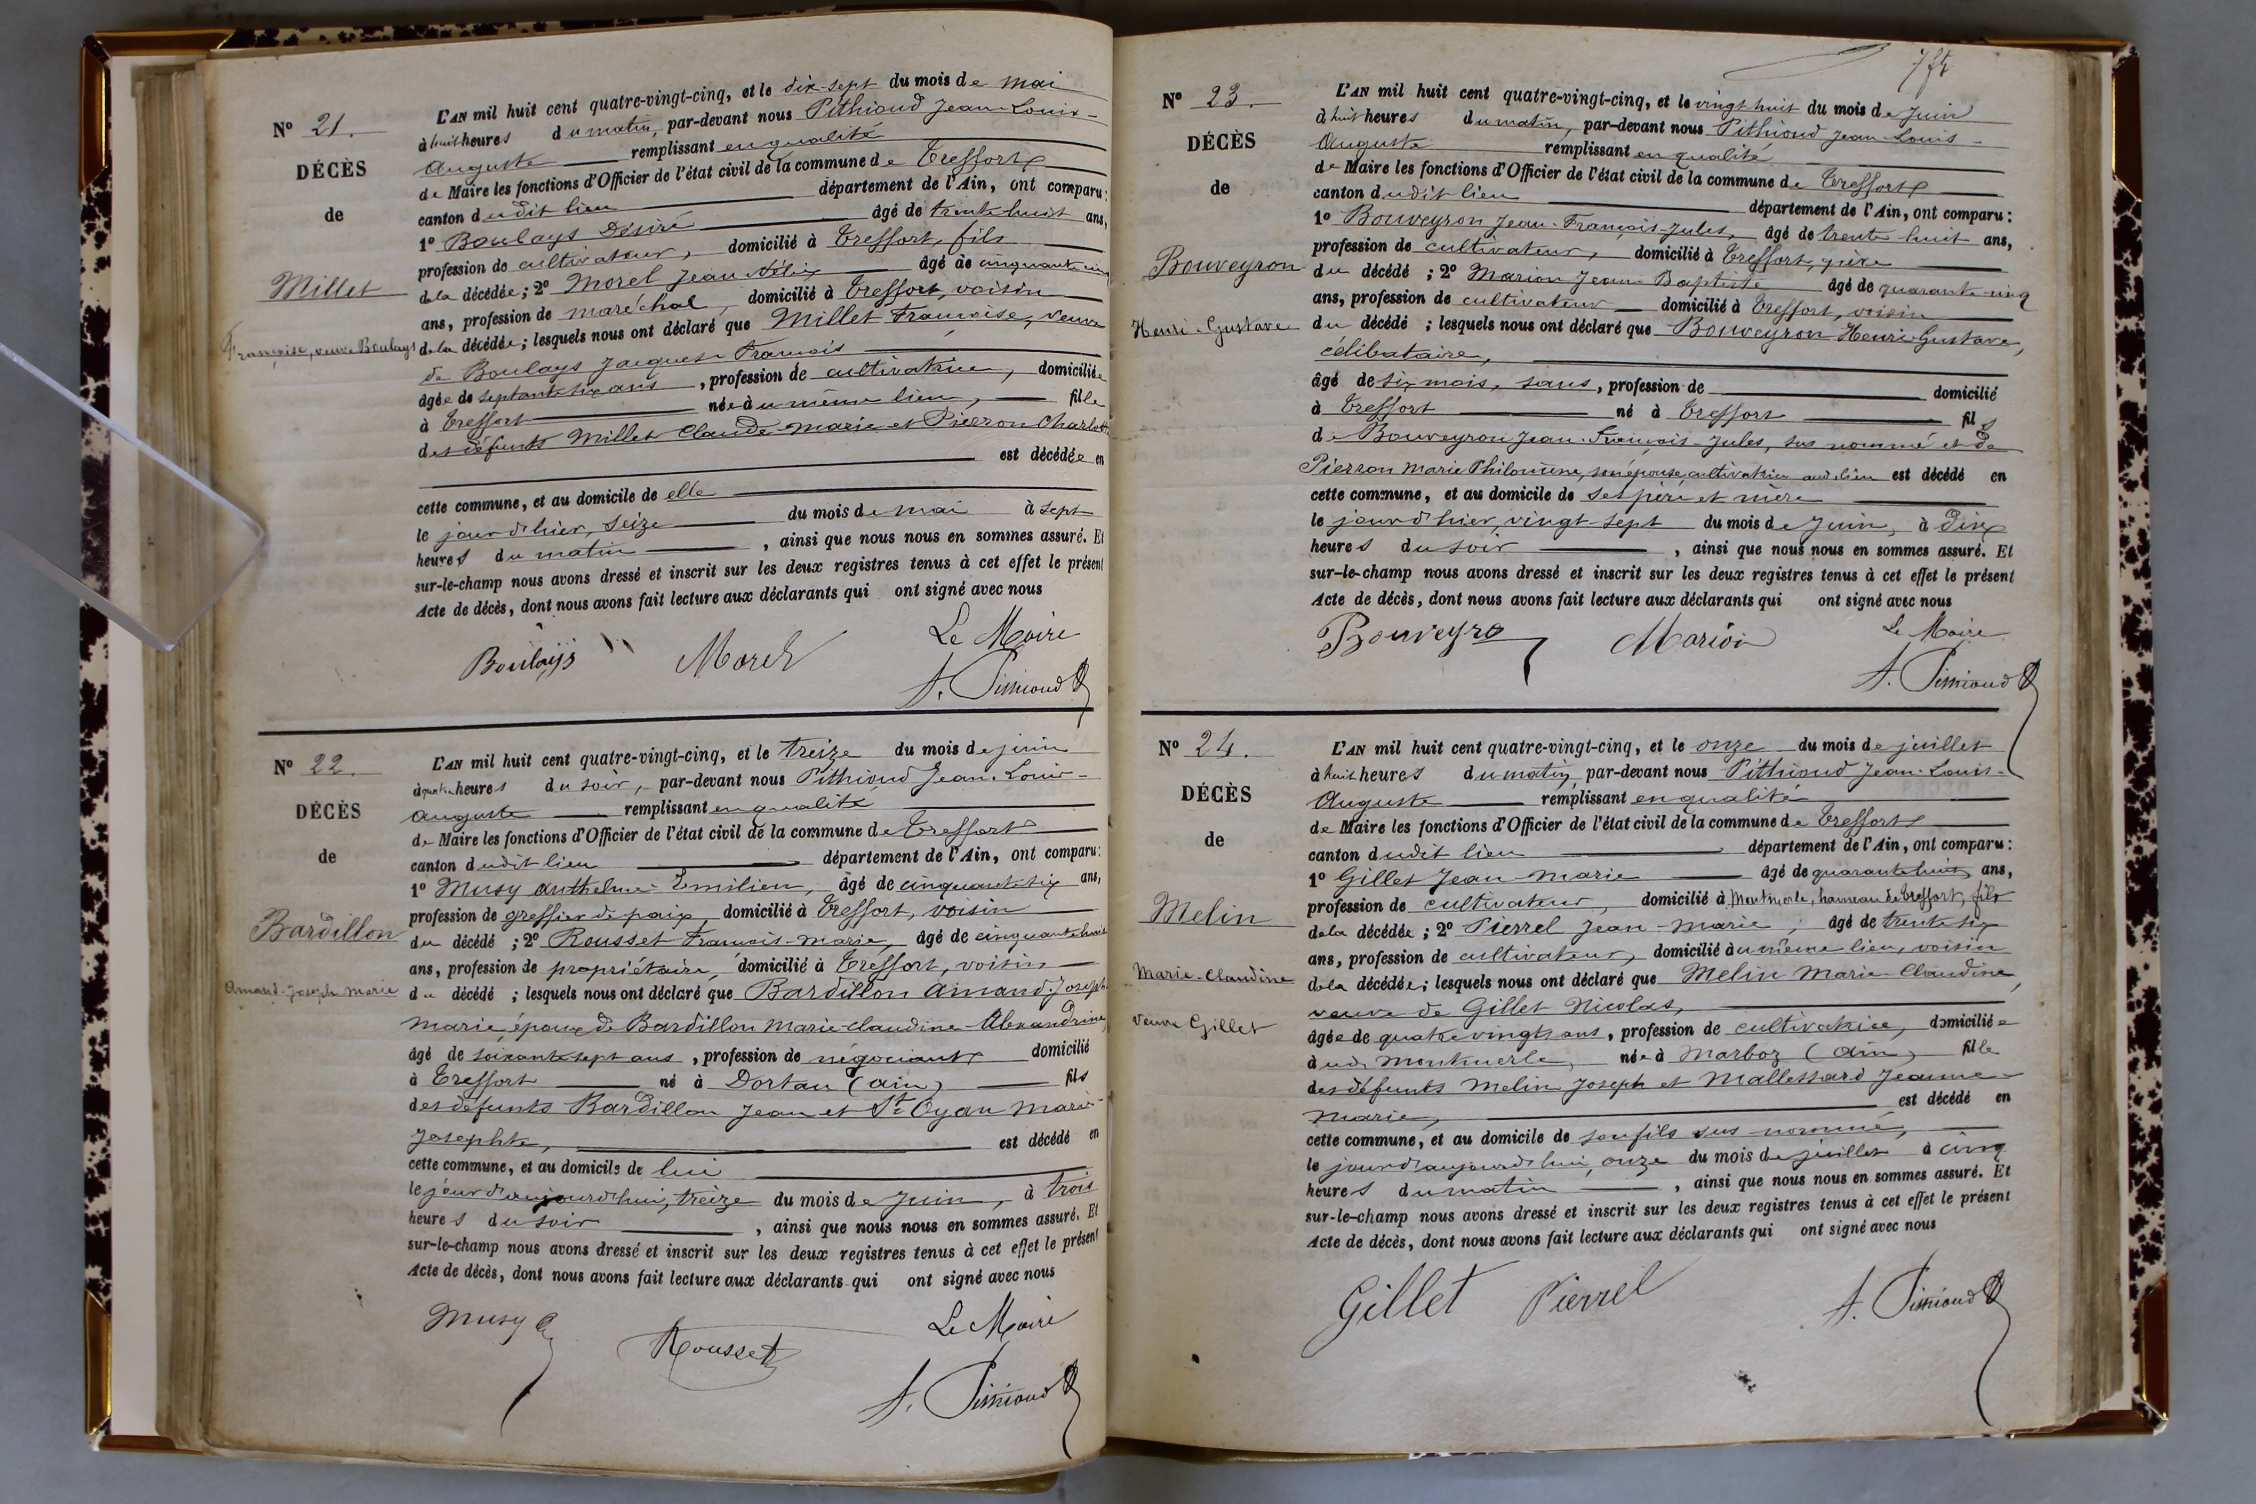 N° 21.
DÉCÈS
de
Millet
Françoise, veuve Boulays
L'AN mil huit cent quatre-vingt-cinq, et le dix-sept du mois de mai
à huit heures du matin, par-devant nous Pithioud Jean-Louis-
Auguste remplissant en qualité
de Maire les fonctions d'Officier de l'état civil de la commune de Treffort
canton dudit lieu département de l'Ain, ont comparu:
1° Boulays Désiré âgé de trente huit ans,
profession de cultivateur, domicilié à Treffort, fils
de la décédée; 2° Morel Jean âgé de cinquante cinq
ans, profession de maréchal, domicilié à Treffort, voisin
de la décédée; lesquels nous ont déclaré que Millet Françoise, veuve
de Boulays Jacques François
âgée de septante six ans, profession de cultivatrice, domiciliée
à Treffort née au même lieu, fille
des défunts Millet Claude-Marie et Pierron Charlotte
est décédée en
cette commune, et au domicile de elle
le jour d'hier, seize du mois de mai à sept
heures du matin, ainsi que nous nous en sommes assuré. Et
sur-le-champ nous avons dressé et inscrit sur les deux registres tenus à cet effet le présent
Acte de décès, dont nous avons fait lecture aux déclarants qui ont signé avec nous
Boulays Morel Le Maire
A. Pithioud
N° 22.
DÉCÈS
de
Bardillon
Amand-Joseph Marie
L'AN mil huit cent quatre-vingt-cinq, et le treize du mois de juin
à quatre heures du soir, par-devant nous Pithioud Jean-Louis-
Auguste remplissant en qualité
de Maire les fonctions d'Officier de l'état civil de la commune de Treffort
canton dudit lieu département de l'Ain, ont comparu:
1° Musy Anthelme Emilien, âgé de cinquante six ans,
profession de greffier de paix, domicilié à Treffort, voisin
du décédé; 2° Rousset François-Marie, âgé de cinquante huit
ans, profession de propriétaire, domicilié à Treffort, voisin
du décédé; lesquels nous ont déclaré que Bardillon Amand-Joseph
Marie, époux de Bardillon Marie-Claudine-Alexandrine,
âgé de soixante sept ans, profession de négociant domicilié
à Treffort né à Dortan (Ain) fils
des défunts Bardillon Jean et St Oyan Marie-
Josephte, est décédé en
cette commune, et au domicile de lui
le jour d'aujourd'hui, treize du mois de juin, à trois
heures du soir, ainsi que nous nous en sommes assuré. Et
sur-le-champ nous avons dressé et inscrit sur les deux registres tenus à cet effet le présent
Acte de décès, dont nous avons fait lecture aux déclarants qui ont signé avec nous
Musy Rousset Le Maire
A. Pithioud
N° 23.
DÉCÈS
de
Bouveyron
Henri-Gustave
L'AN mil huit cent quatre-vingt-cinq, et le vingt huit du mois de juin
à huit heures du matin, par-devant nous Pithioud Jean-Louis-
Auguste remplissant en qualité
de Maire les fonctions d'Officier de l'état civil de la commune de Treffort
canton dudit lieu département de l'Ain, ont comparu:
1° Bouveyron Jean-François-Jules, âgé de trente huit ans,
profession de cultivateur, domicilié à Treffort, père
du décédé; 2° Marion Jean-Baptiste âgé de quarante-cinq
ans, profession de cultivateur domicilié à Treffort, voisin
du décédé; lesquels nous ont déclaré que Bouveyron Henri-Gustave,
célibataire,
âgé de six mois, sans, profession de domicilié
à Treffort né à Treffort fils
de Bouveyron Jean-François-Jules, sus nommé et de
Pierron Marie Philomène, son épouse, cultivatrice aud. lieu est décédé en
cette commune, et au domicile de ses père et mère
le jour d'hier, vingt-sept du mois de juin, à dix
heures du soir, ainsi que nous nous en sommes assuré. Et
sur-le-champ nous avons dressé et inscrit sur les deux registres tenus à cet effet le présent
Acte de décès, dont nous avons fait lecture aux déclarants qui ont signé avec nous
Bouveyro Marion Le Maire
A. Pithioud
N° 24.
DÉCÈS
de
Melin
Marie-Claudine
Veuve Gillet
L'AN mil huit cent quatre-vingt-cinq, et le onze du mois de juillet
à huit heures du matin, par-devant nous Pithioud Jean-Louis-
Auguste remplissant en qualité
de Maire les fonctions d'Officier de l'état civil de la commune de Treffort
canton dudit lieu département de l'Ain, ont comparu:
1° Gillet Jean-Marie âgé de quarante huit ans,
profession de cultivateur, domicilié à Montmerle, hameau de Treffort, fils
de la décédée; 2° Pierrel Jean-Marie, âgé de trente six
ans, profession de cultivateur, domicilié au même lieu, voisin
de la décédée; lesquels nous ont déclaré que Melin Marie-Claudine,
veuve de Gillet Nicolas,
âgée de quatre vingts ans, profession de cultivatrice, domiciliée
aud. Montmerle, née à Marboz (Ain) fille
des défunts Melin Joseph et Mallessard Jeanne-
Marie, est décédé en
cette commune, et au domicile de son fils sus nommé,
le jour d'aujourd'hui, onze du mois de juillet à cinq
heures du matin, ainsi que nous nous en sommes assuré. Et
sur-le-champ nous avons dressé et inscrit sur les deux registres tenus à cet effet le présent
Acte de décès, dont nous avons fait lecture aux déclarants qui ont signé avec nous
Gillet Pierrel A. Pithioud